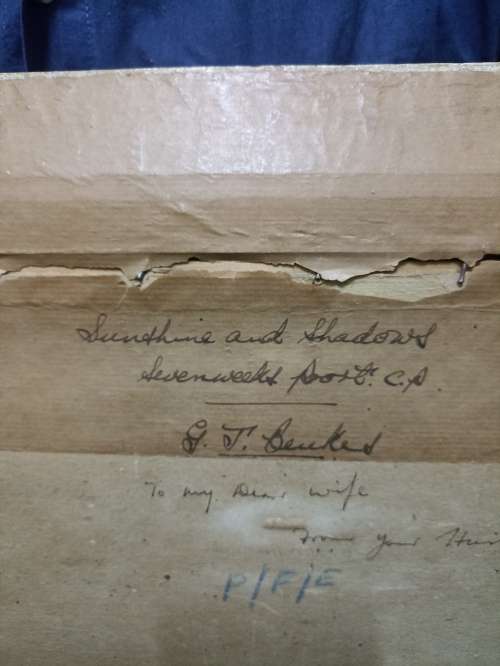 Sunshine and Shadows
Sevenweeks Poort. C.P.
G. T. Beukes
To my Dear wife
From your
P/F/E